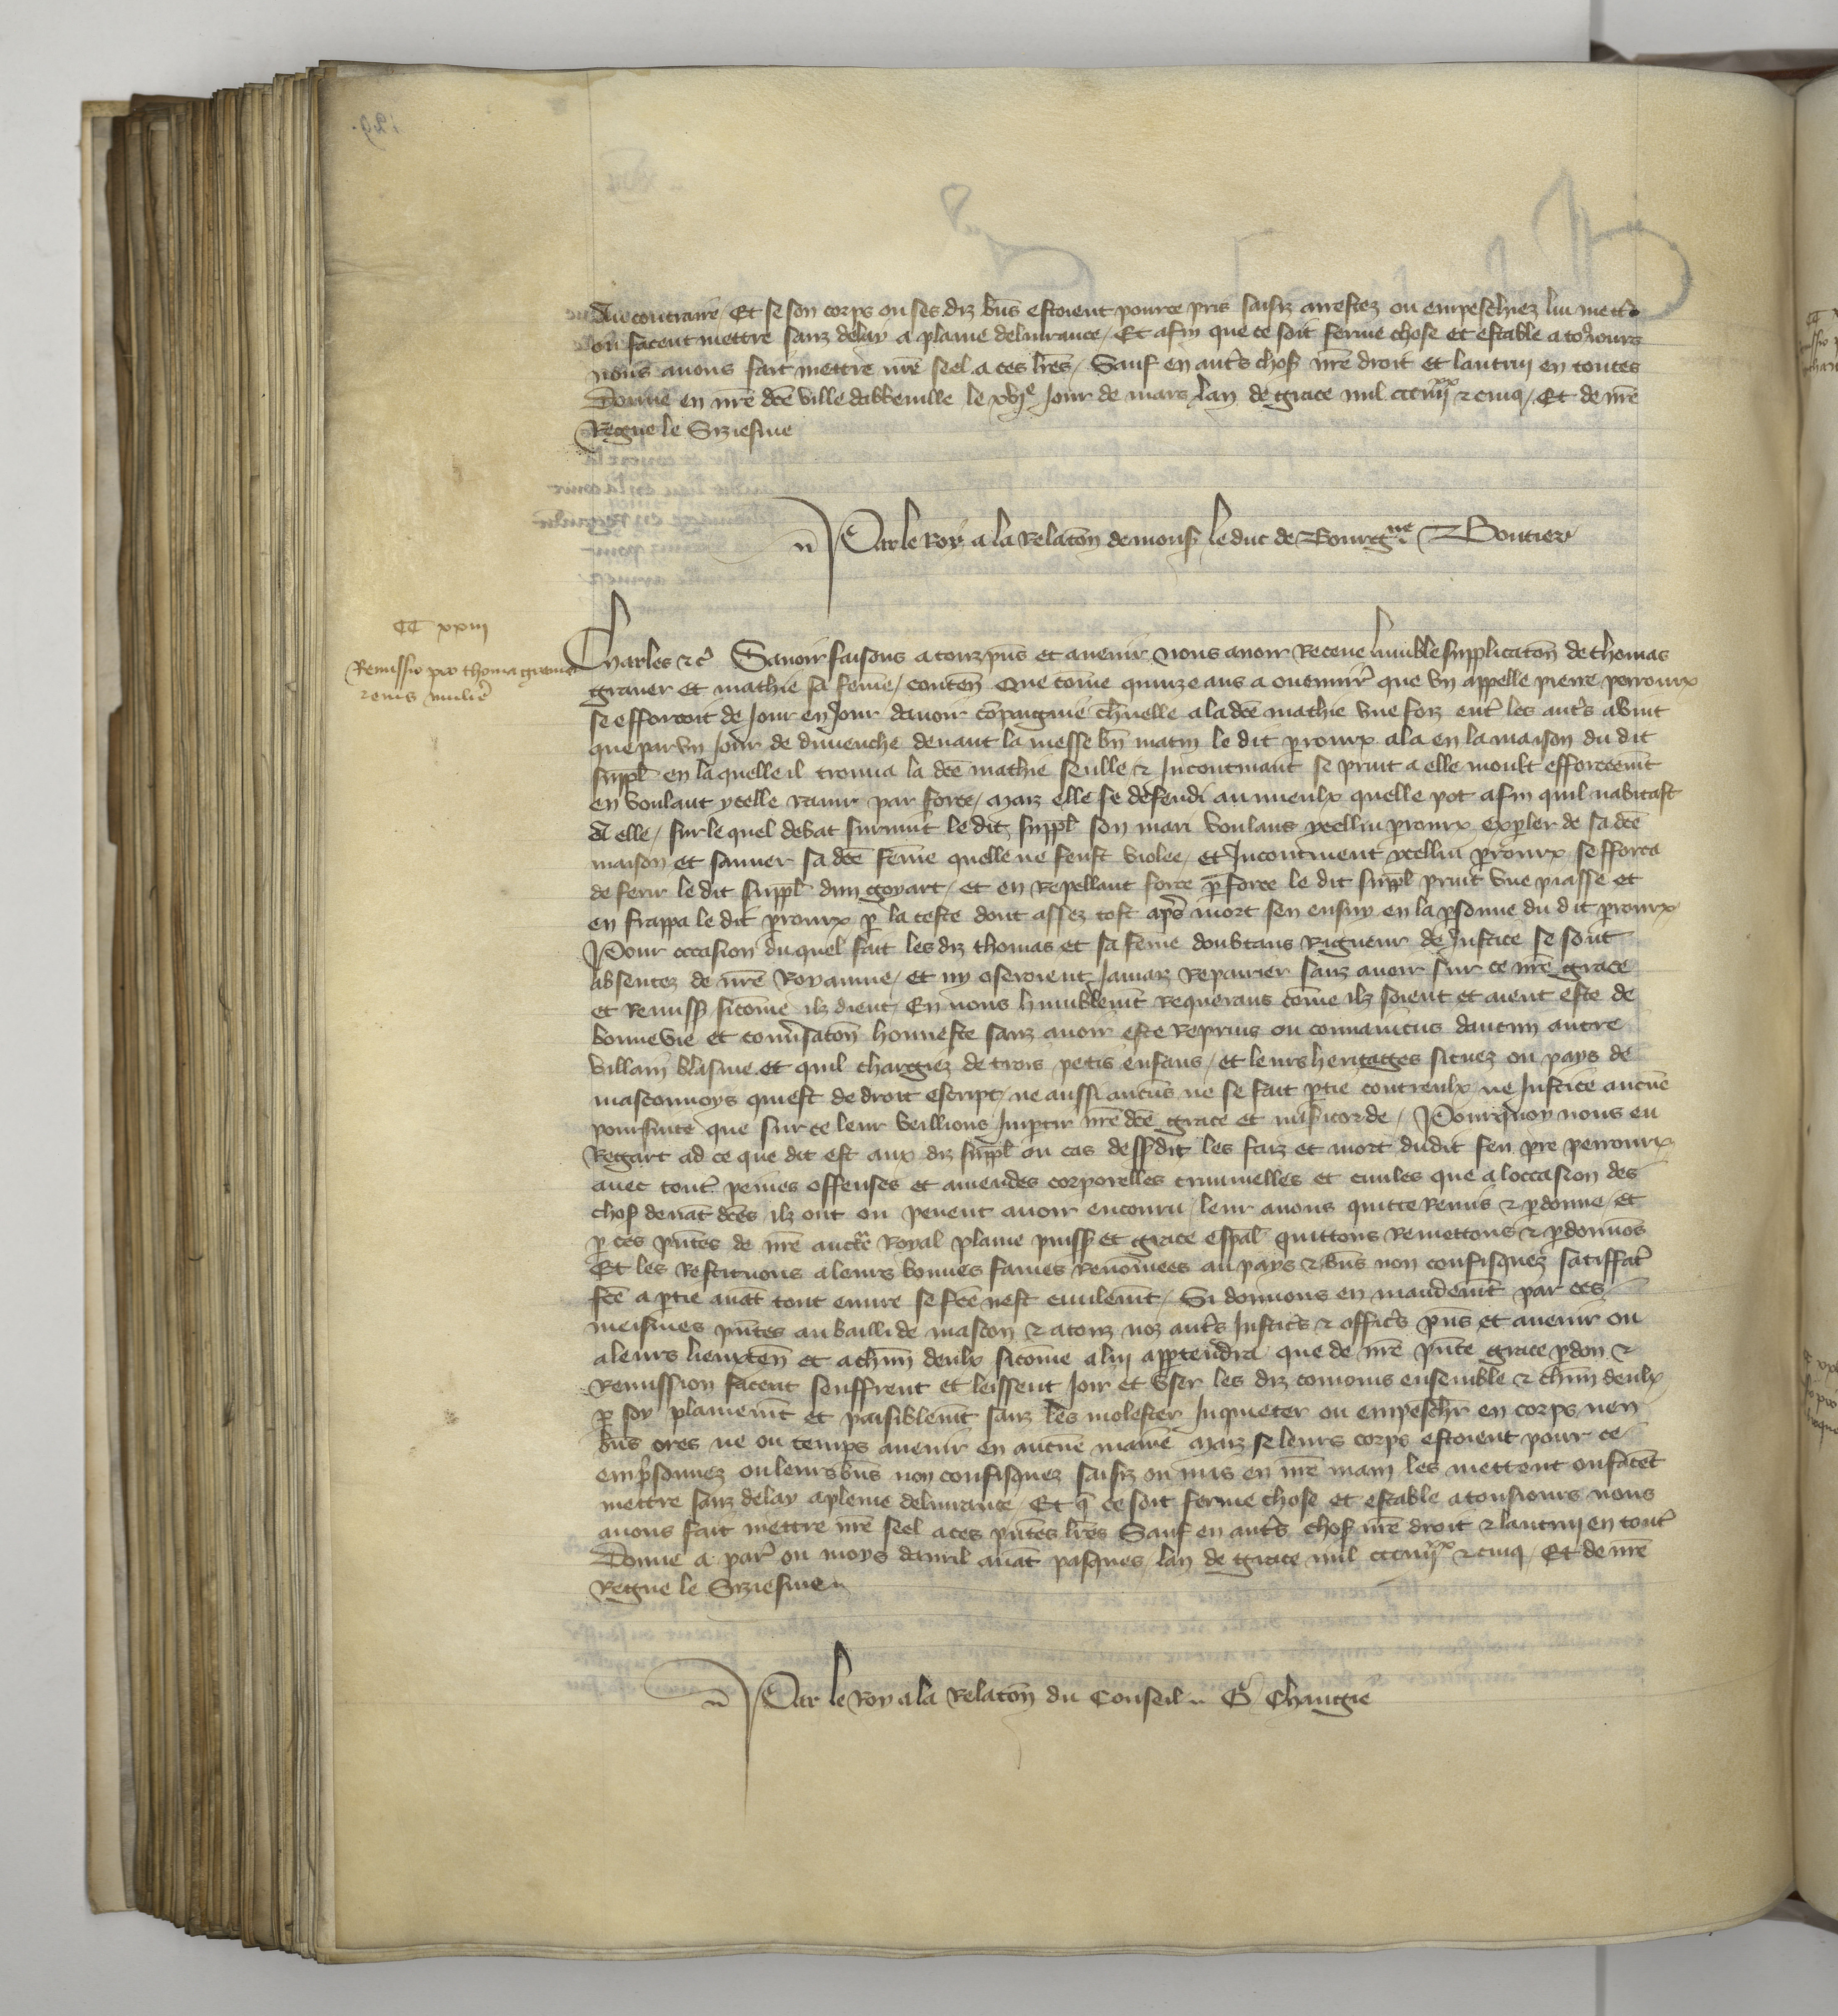 Au contraire / Et se son corps ou ses diz bn̄s estoient pource pris saisiz arrestez ou empeschiez lui mettr̄
ou facent mettre sanz delay a plaine deliurance / Et afin que ce soit ferme chose et estable a toz iours
nous auons fait mettre nr̄e seel a ces lr̄es / Sauf en autr̄s chos̄ nr̄e droit et lautruy en toutes
Donne en nr̄e dc̄e ville dabbeuille le xvıȷe Jour de mars lan de grace mil ccciiijxx ⁊ cinq / Et de nr̄e
Regne le Siziesme
Par le Roy a la Relatōn de mons̄ le duc de Bourgne Pontier
CC xxiij
Remissio pro thoma graner
⁊ eius mulier̄
Charles ⁊c̄ Sauoir faisons a touz pn̄s et auenir nous auoir Receue humble supplicatōn de thomas
graner et mathie sa feme / conten̄ Que cōme quinze ans a ou enuir̄ que vn appelle pierre perroux
se efforcoit de Jour en Jour dauoir cōpaignie ch̄nelle a la dc̄e mathie vne foiz entr̄ les autr̄s avint
que par vn Jour de dimenche deuant la messe bn̄ matin le dit prourx ala en la maison du dit
suppl̄ en laquelle il trouua la dc̄e mathie seulle ⁊ Incontinant se print a elle moult efforceemt̄
en voulant ycelle rauir par force / maiz elle se defendi au mieulx quelle pot afin quil nabitast
A elle / sur lequel debat suruint le dit suppl̄ son mari voulans ycellui prourx expeler de sa dc̄e
maison et sauuer sa dc̄e feme quelle ne feust violee / et Incontinent ycellui prourx sefforca
de ferir le dit suppl̄ dun goyart / et en Repellant force p̄ force le dit suppl̄ print vne piasse et
en frappa le dit prourx p̄ la teste dont assez tost apr̄s mort sen ensuy en la p̄sonne du dit prourx
Pour occasion du quel fait les diz thomas et sa feme doubtans Rigueur de Justice se sont
absentez de nr̄e Royaume / et ny oseroient Jamaiz Repairier sanz auoir sur ce nr̄e grace
et Remiss̄ sicōme ilz dient / En nous humblemt̄ Requerans cōme ilz soient et aient este de
bonne vie et conūsatōn honneste sanz auoir este Reprins ou conuaincus dautrui autre
villain blasme et quil chargiez de trois petis enfans / et leurs heritages situez ou pays de
masconnoys qui est de droit escript / ne aussi aucūs ne se fait p̄tie contreulx ne Justice aucūe
poursuite que sur ce leur veillions Imp̄tir nr̄e dc̄e grace et mis̄icorde / Pourquoy nous eu
Regart ad ce que dit est aux diz suppl̄ ou cas dess̄dit les faiz et mort dudit feu pr̄e perrourx
auec tout̄ peines offenses et amendes corporelles criminelles et ciuiles que a loccasion des
chos̄ deuāt dc̄es ilz ont ou peuent auoir encouru / leur auons quitte Remis ⁊ p̄donne / et
p̄ ces pn̄tes de nr̄e auctēr Royal plaine puiss̄ et grace esp̄al̄ quittons Remettons ⁊ p̄donnos
Et les Restituons a leurs bonnes fames Renōmees au pays ⁊ bn̄s non confisquez satiffatr̄
fc̄e a p̄tie auāt tout euure se fc̄e nest ciuilemt̄ / Si donnons en mandemt̄ par ces
meismes pn̄tes au bailli de mascon ⁊ a touz noz autr̄s Justicr̄s ⁊ officr̄s pn̄s et auenir ou
a leurs lieuxten̄ et a ch̄un deulx sicōme a luy app̄tendra que de nr̄e pn̄te grace p̄don ⁊
Remission facent seuffrent et leissent Joir et vser les diz coniouis ensemble ⁊ ch̄un deulx
p̄ soy plainemt̄ et paisiblemt̄ sanz les molester Inquieter ou empeschr̄ en corps nen
bn̄s ores ne ou temps auenir en aucūe maniē / maiz se leurs corps estoient pour ce
emp̄sonnez ou leurs bn̄s non confisquez saisiz ou mis en nr̄e main les mettent ou facēt
mettre sanz delay a pleine deliurance / Et q̄ ce soit ferme chose et estable a tousiours nous
auons fait mettre nr̄e seel a ces pn̄tes lr̄es Sauf en autr̄s chos̄ nr̄e droit ⁊ lautruy en tout̄
Donne a par̄ ou moys dauril auāt pasques / lan de grace mil ccciiijxx ⁊ cinq / Et de nr̄e
Regne le Siziesme
Par le Roy a la Relatōn du Conseil G Changiē